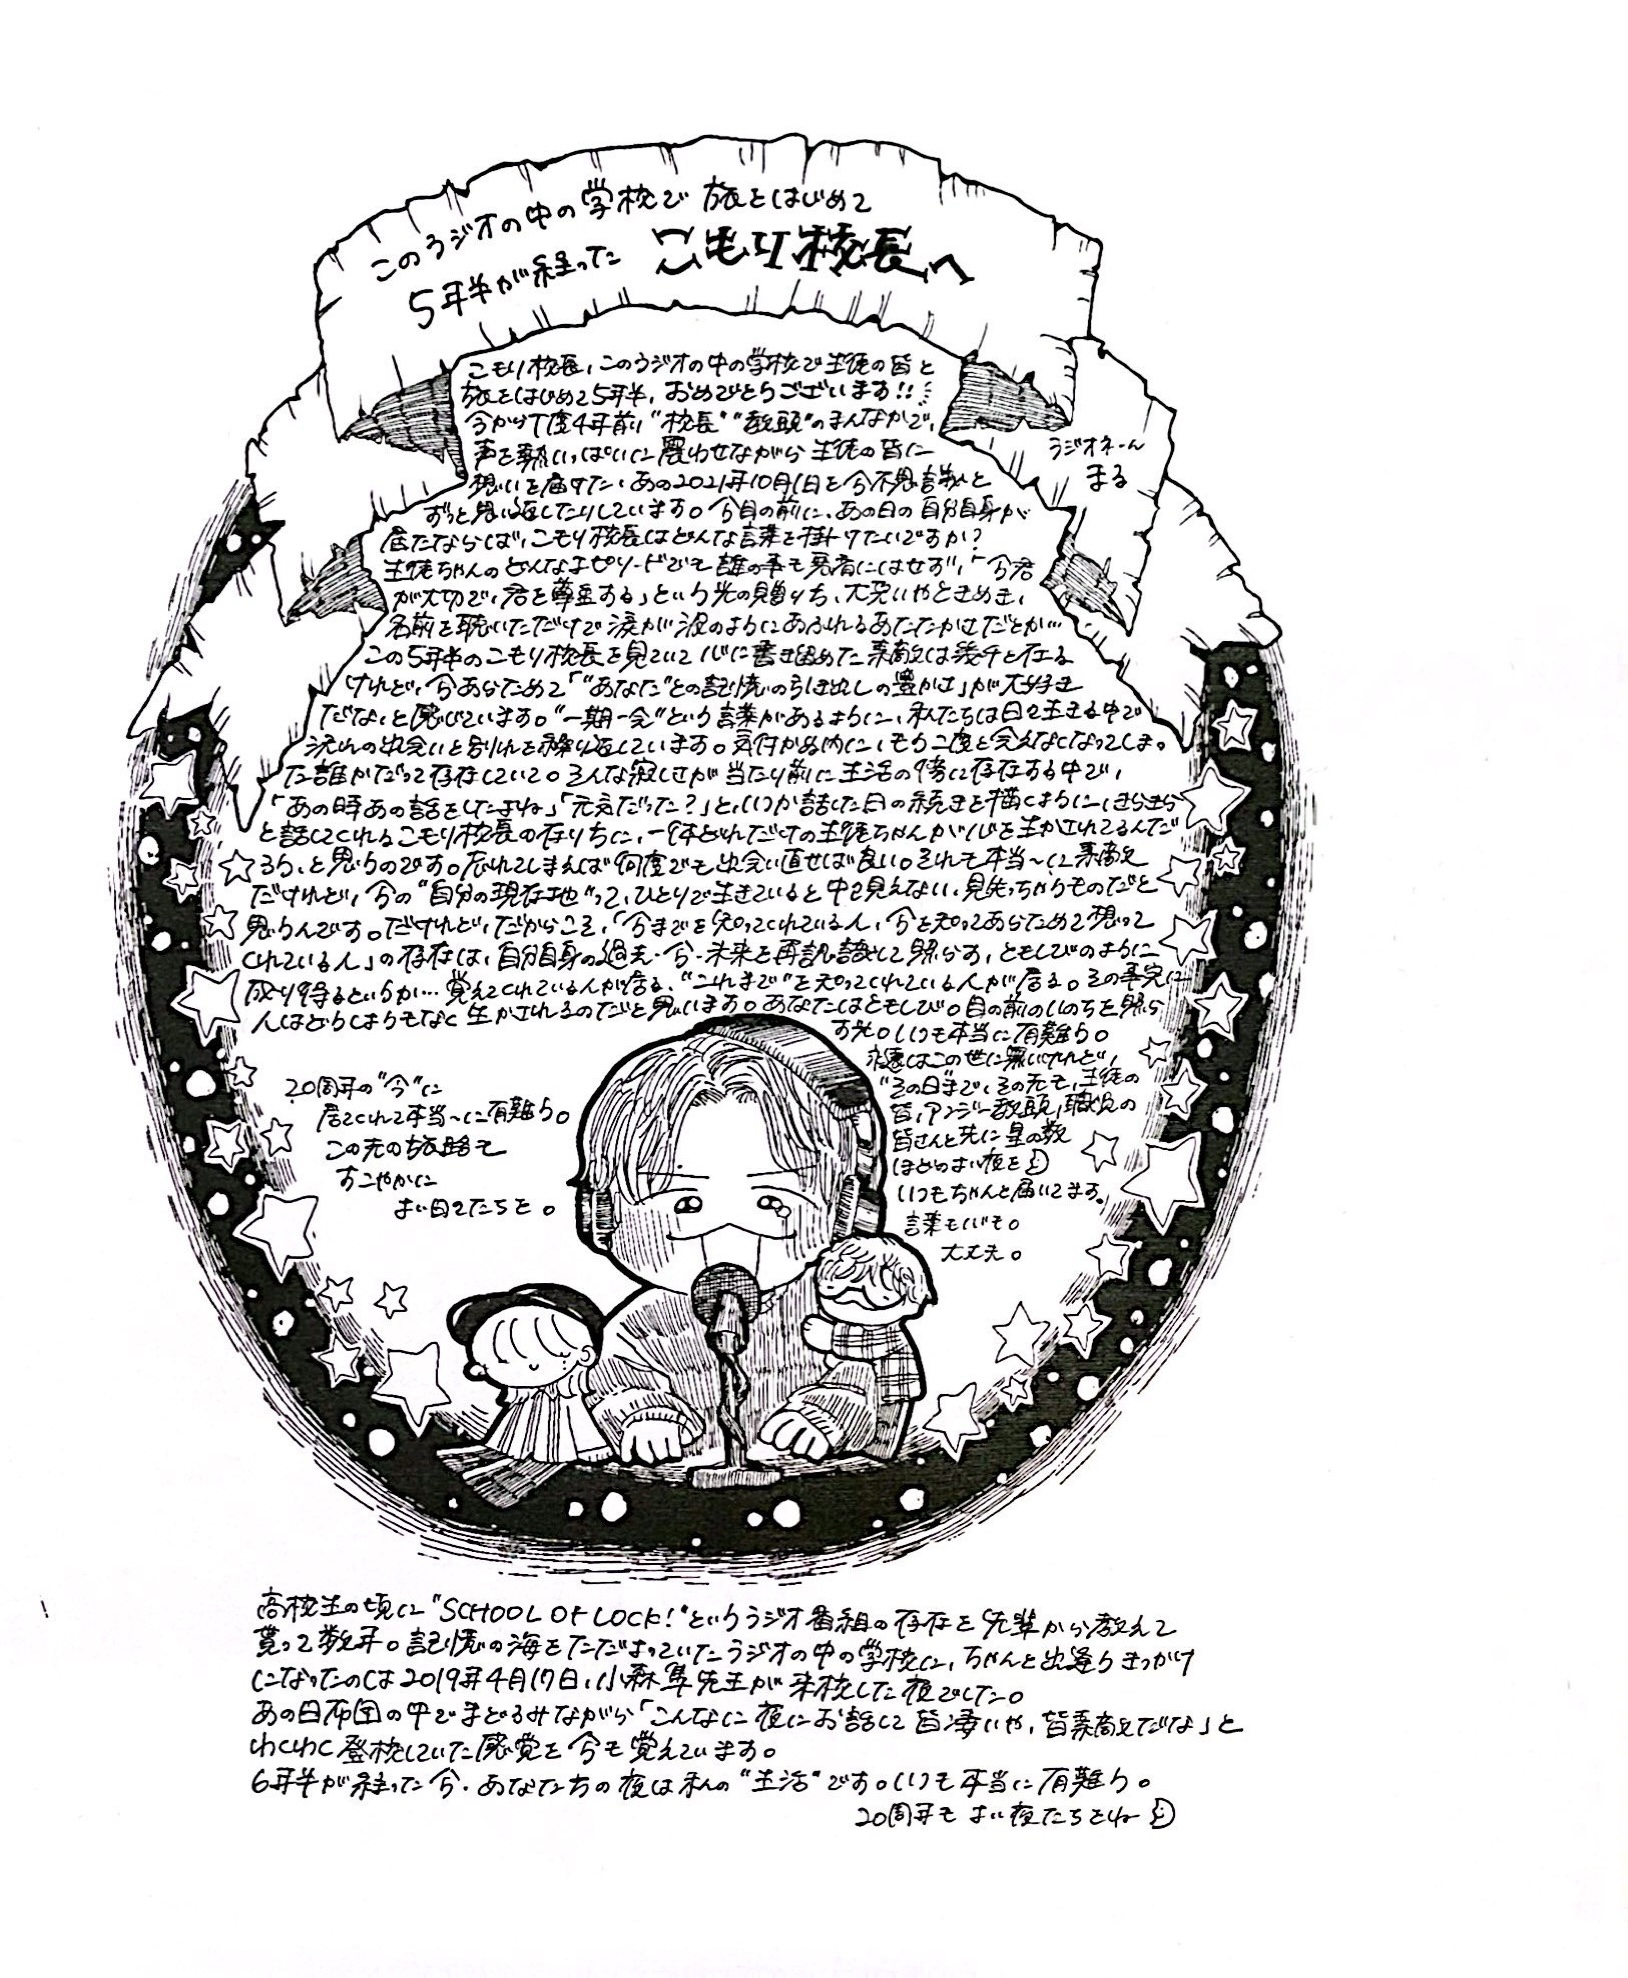 このラジオの中の学校で 旅をはじめて
5年半が経った こもり校長へ
ラジオネーム
まる
こもり校長、このラジオの中の学校で生徒の皆と
旅をはじめて5年半、おめでとうございます!!
今から丁度4年前、"校長" "教頭"のまんなかで、
声を熱いっぱいに震わせながら生徒の皆に
想いを届けた、あの2021年10月1日を今不思議と
ずっと思い返したりしています。今目の前に、あの日の自分自身が
居たならば、こもり校長はどんな言葉を掛けたいですか?
生徒ちゃんのどんなエピソードでも誰の事も悪者にはせず、「今君
が大切で、君を尊重する」という光の贈りち、大笑いやときめき、
名前を聴いただけで涙が波のようにあふれるあたたかさだとか…
この5年半のこもり校長を見ていて心に書き留めた素敵は幾千と在る
けれど、今あらためて「"あなた"との記憶の引き出しの豊かさ」が大好き
だな、と感じています。"一期一会"という言葉があるように、私たちは日々生きる中で
沢山の出会いと別れを繰り返しています。気付かぬ内に、もう二度と会えなくなってしまっ
た誰かだって存在していて。そんな寂しさが当たり前に生活の傍に存在する中で、
「あの時あの話をしたよね」「元気だった?」と、いつか話した日の続きを描くように、きらきら
と話してくれるこもり校長の在りちに、一体どれだけの生徒ちゃんが心を生かされてるんだ
ろう、と思うのです。忘れてしまえば何度でも出会い直せば良い。それも本当〜に素敵
だけれど、今の"自分の現在地"って、ひとりで生きていると中々見えない、見失っちゃうものだと
思うんです。だけれど、だからこそ、「今までを知ってくれている人、今を知ってあらためて想って
くれている人」の存在は、自分自身の過去・今・未来を再認識して照らす、ともしびのように
成り得るというか…覚えてくれている人が居る、"これまで"を知ってくれている人が居る。その事実に
人はどうしようもなく生かされるのだと思います。あなたはともしび。目の前のいのちを照ら
す光。いつも本当に有難う。
永遠はこの世に無いけれど、
"その日"まで、その先も、生徒の
皆、アンジー教頭、職員の
皆さんと共に星の数
ほどのよい夜を
いつもちゃんと届いてます。
言葉も心も。
大丈夫。
20周年の"今"に
居てくれて本当〜に有難う。
この先の旅路も
すこやかに
よい日々たちを。
高校生の頃に"SCHOOL OF LOCK!"というラジオ番組の存在を先輩から教えて
貰って数年。記憶の海をただよっていたラジオの中の学校に、ちゃんと出逢うきっかけ
になったのは2019年4月17日、小森隼先生が来校した夜でした。
あの日布団の中でまどろみながら「こんなに夜にお話して皆凄いや、皆素敵だな」と
わくわく登校していた感覚を今も覚えています。
6年半が経った今・あなたたちの夜は私の"生活"です。いつも本当に有難う。
20周年も よい夜たちをね